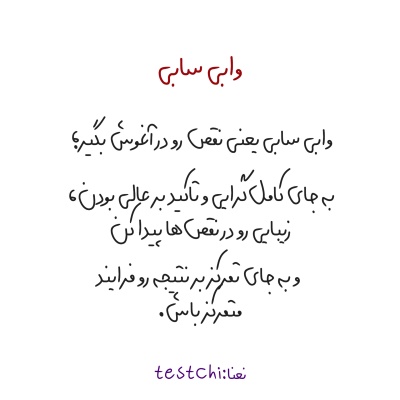 وابی سابی
وابی سابی یعنی نقص رو در آغوش بگیر؛
به جای کامل‌گرایی و تاکید بر عالی بودن،
زیبایی رو در نقص‌ها پیدا کن
و به جای تمرکز بر نتیجه رو فرایند
متمرکز باش.
نعنا:testchi